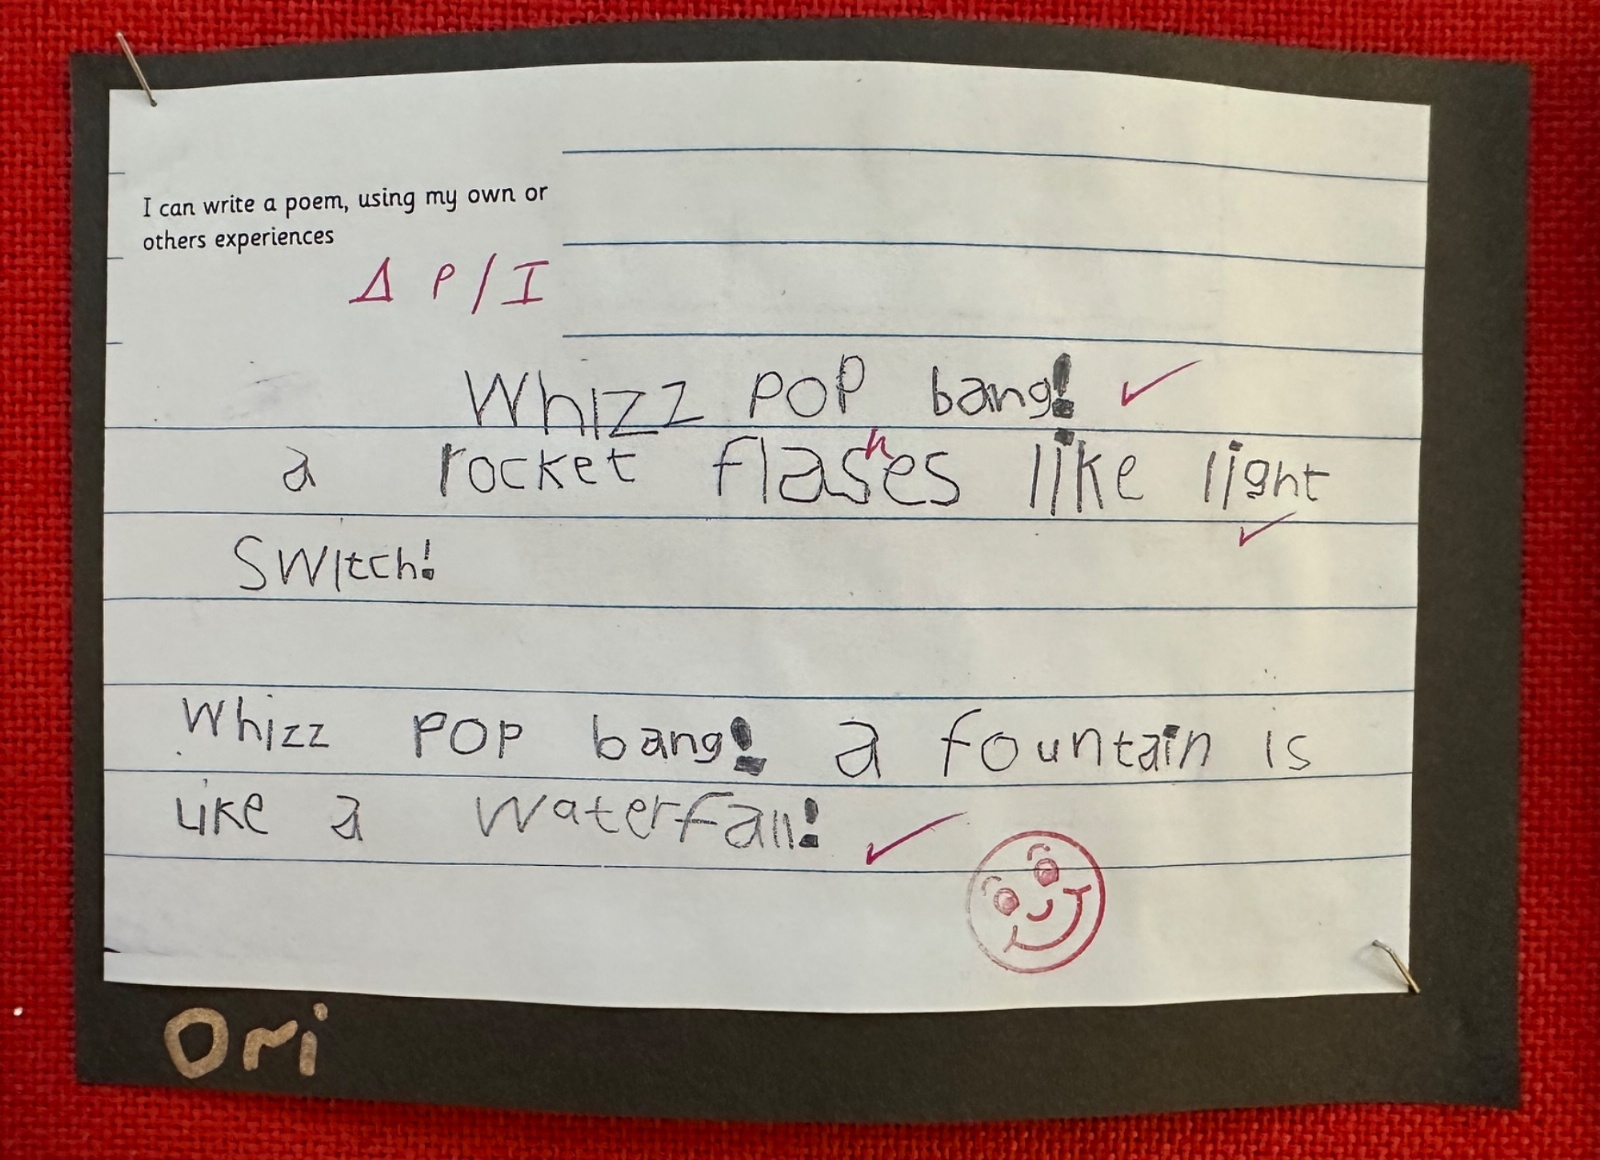 I can write a poem, using my own or
others experiences
Δ P/I
Whizz POP bang! ✓
a rocket flashes like light
✓
Switch!
Whizz POP bang! a fountain is
like a waterfall! ✓
Ori